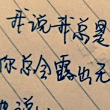 我说我总是
你总会露出无